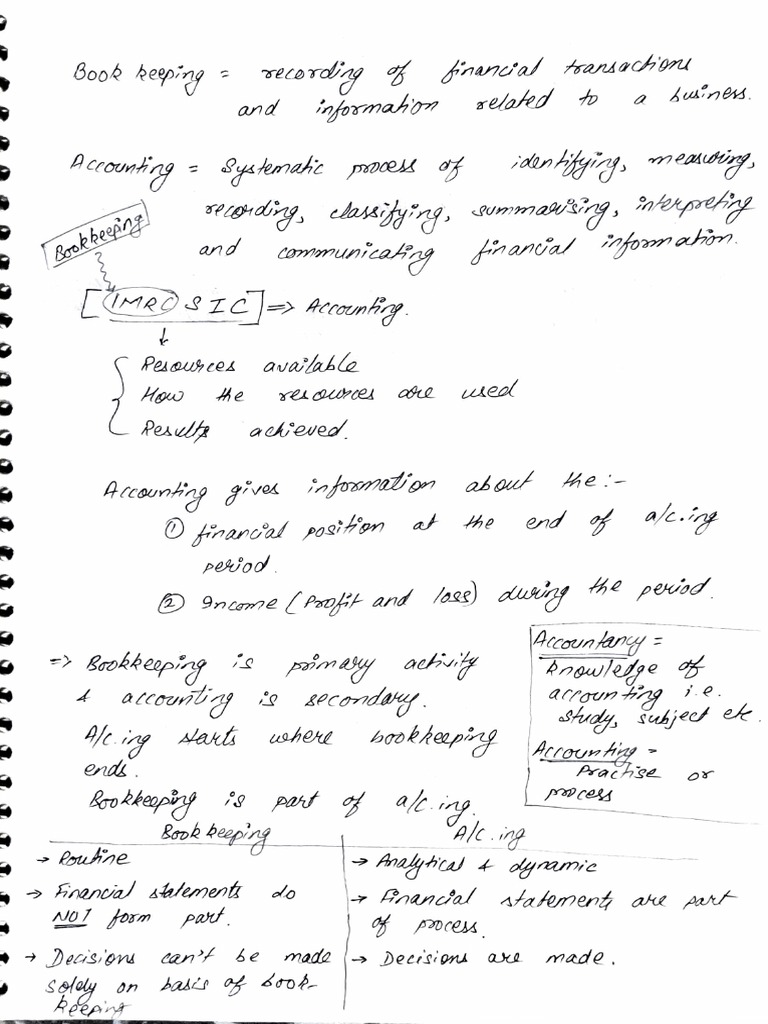 Book keeping = recording of financial transactions
and information related to a business.
Accounting = Systematic process of identifying, measuring,
recording, classifying, summarising, interpreting
and communicating financial information.
Bookkeeping
[IMRC SIC] => Accounting.
Resources available
How the resources are used
Results achieved.
Accounting gives information about the :-
① financial position at the end of a/c.ing
period.
② Income (Profit and loss) during the period.
=> Bookkeeping is primary activity
& accounting is secondary.
A/c.ing starts where bookkeeping
ends.
Bookkeeping is part of a/c.ing.
Accountancy =
knowledge of
accounting i.e.
study, subject etc.
Accounting =
Practise or
process
Book keeping
→ Routine
→ Financial statements do
NOT form part.
→ Decisions can't be made
solely on basis of book-
keeping
A/c.ing
→ Analytical & dynamic
→ Financial statements are part
of process.
→ Decisions are made.